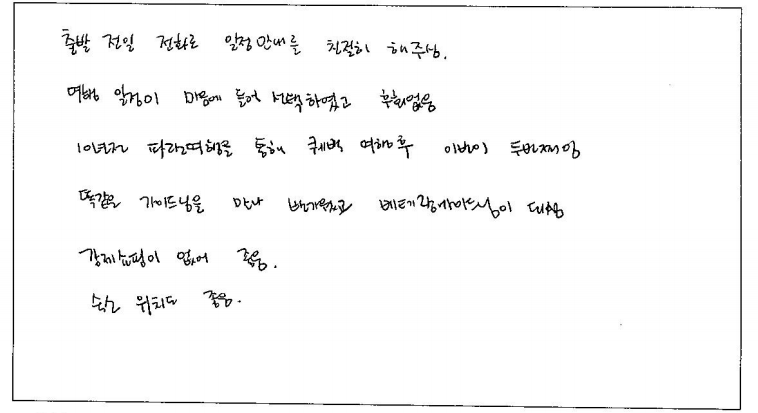 출발 전일 전화로 일정안내를 친절히 해주심.
여행 일정이 마음에 들어 선택하였고 후회없음
10년전 파란여행를 통해 퀘벡 여행후 이번이 두번째임
똑같은 가이드님을 만나 반가웠고 베테랑가이드님이 되심
강제쇼핑이 없어 좋음.
숙소 위치도 좋음.